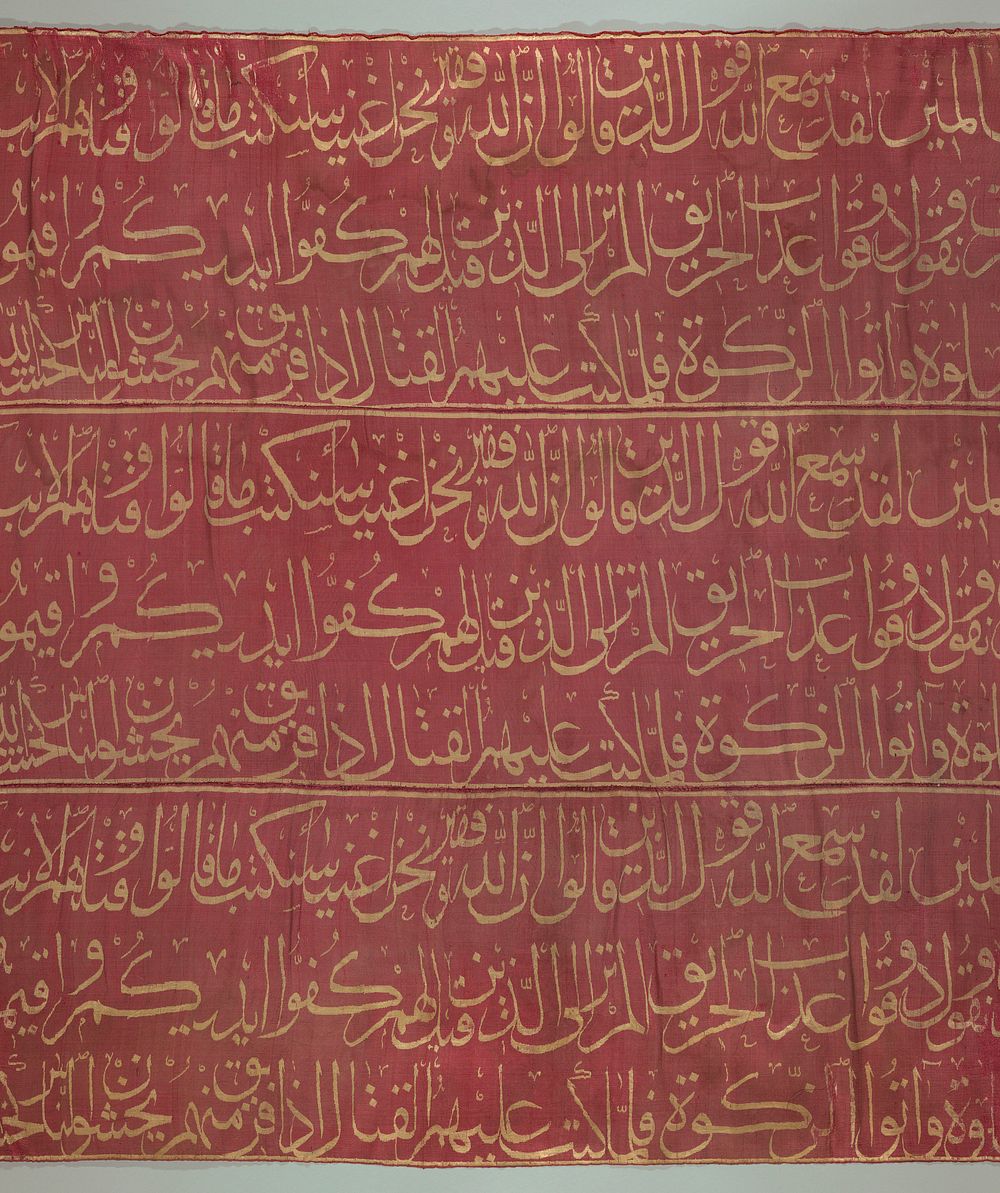 لقد سمع الله قول الذين قالوا ان الله فقير ونحن اغنيا سنكتب ما قالوا وقتلهم الانب
ونقول ذوقوا عذاب الحريق الم تر الى الذين قيل لهم كفوا ايديكم واقيمو
لوة وآتوا الزكوة فلما كتب عليهم القتال اذا فريق منهم يخشون الناس
لقد سمع الله قول الذين قالوا ان الله فقير ونحن اغنيا سنكتب ما قالوا وقتلهم الانب
ونقول ذوقوا عذاب الحريق الم تر الى الذين قيل لهم كفوا ايديكم واقيمو
لوة وآتوا الزكوة فلما كتب عليهم القتال اذا فريق منهم يخشون الناس
لقد سمع الله قول الذين قالوا ان الله فقير ونحن اغنيا سنكتب ما قالوا وقتلهم الانب
ونقول ذوقوا عذاب الحريق الم تر الى الذين قيل لهم كفوا ايديكم واقيمو
لوة وآتوا الزكوة فلما كتب عليهم القتال اذا فريق منهم يخشون الناس